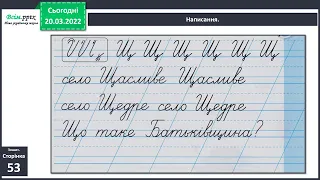 Всім.pptx
Сьогодні
20.03.2022
Написання.
Щ Щ Щ Щ Щ Щ
село Щасливе Щасливе
село Щедре село Щедре
Що таке Батьківщина?
Сторінка
53